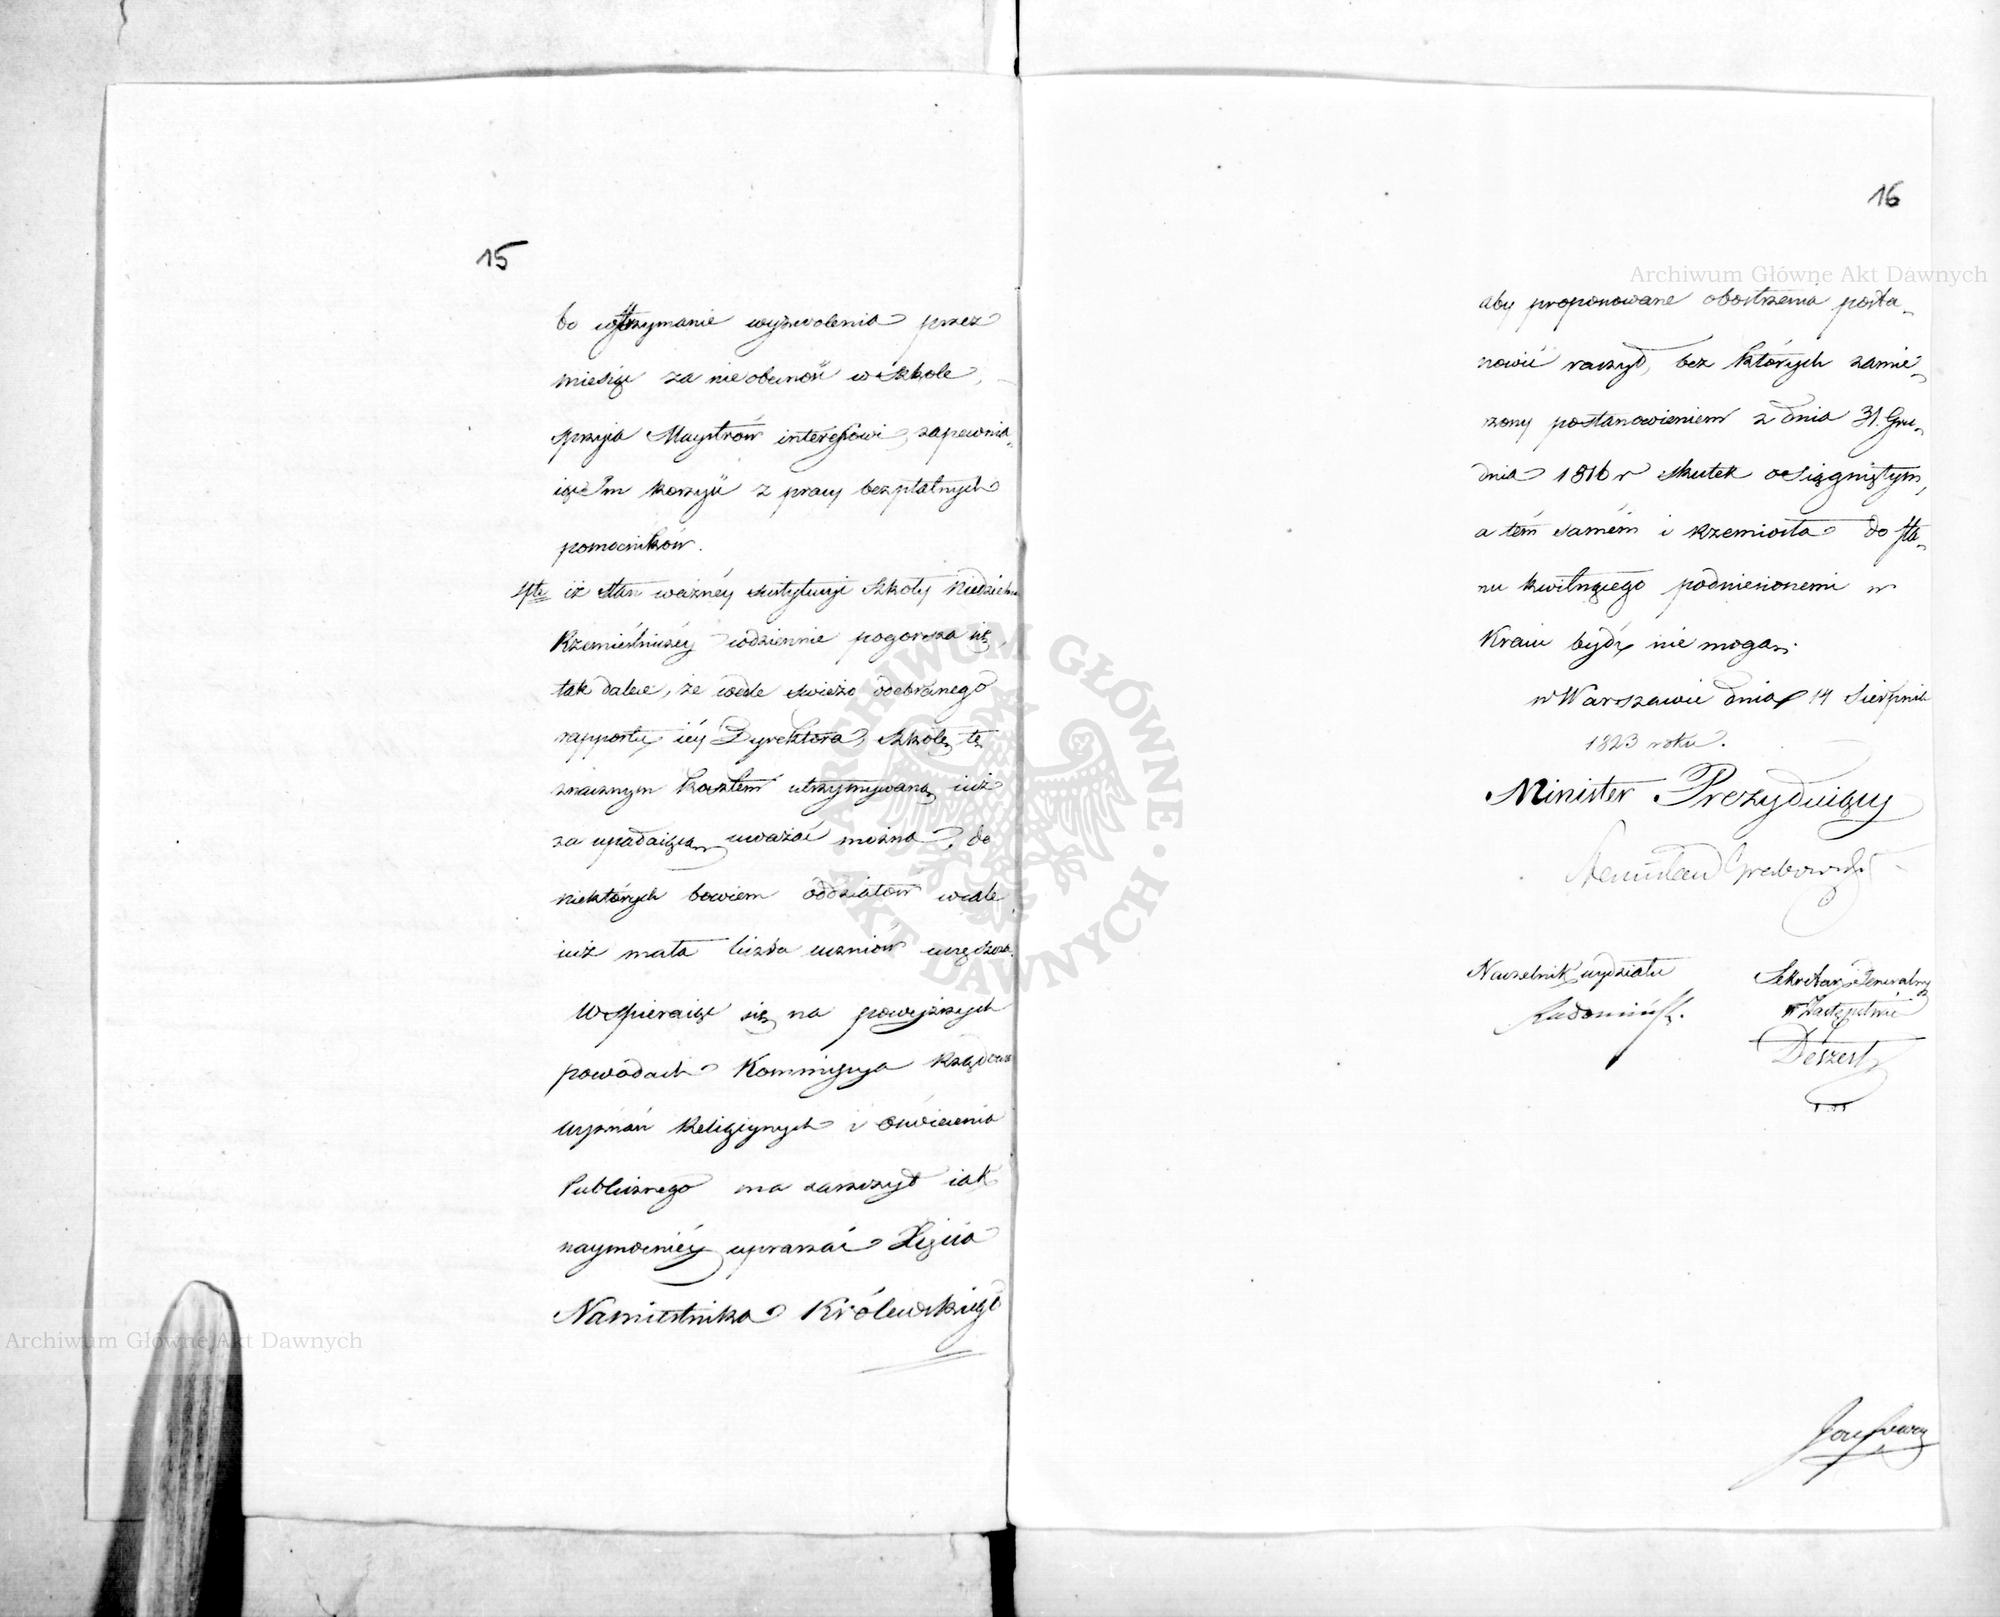 15
bo wstrzymanie wyzwolenia przez
miesiąc za nieobecność w szkole,
sprzyia Maystrów interessowi, zapewnia-
iąc Im korzyść z pracy bezpłatnych
pomocników.
4te iż stan ważnéy instytucyi szkoły Niedzielno
Rzemieślniczéy codziennie pogorsza się,
tak dalece, że wedle świeżo odebranego
rapportu iéy Dyrektora, szkołę tę
znacznym kosztem utrzymywaną iuż
za upadaiącą uważać można, do
niektórych bowiem oddziałów wcale
iuż mała liczba uczniów uczęszcza.
Wspieraiąc się na powyższych
powodach Kommissya Rządowa
Wyznań Religiynych i Oświecenia
Publicznego ma zaszczyt iak
naymocniéy upraszać Xięcia
Namiestnika Królewskiego
16
aby proponowane obostrzenia posta-
nowić raczył, bez których zamie-
rzony postanowieniem z dnia 31. Gru-
dnia 1816 r skutek osiągniętym,
a tém samém i rzemiosła do sta-
nu kwitnącego podniesionemi w
Kraiu bydź nie mogą.
w Warszawie dnia 14 Sierpnia
1823 roku.
Minister Prezyduiący
Stanisław Grabowski
Naczelnik wydziału
Radomiński.
Sekretarz Generalny
w Zastępstwie
Deszert
Archiwum Główne Akt Dawnych
Archiwum Główne Akt Dawnych
ARCHIWUM GŁÓWNE · AKT DAWNYCH ·